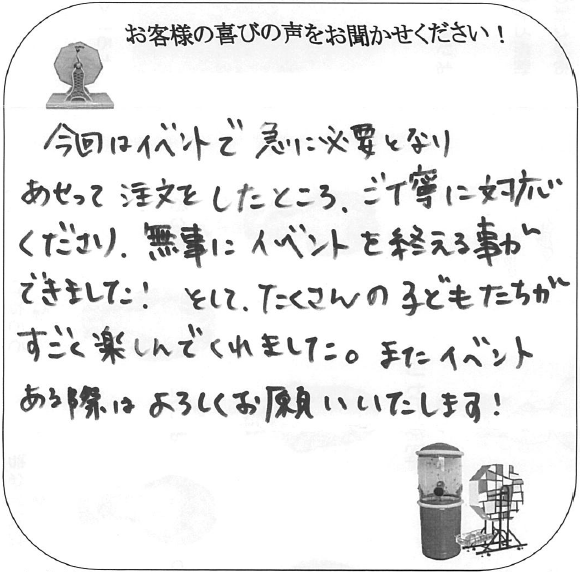 お客様の喜びの声をお聞かせください！
今回はイベントで急に必要となり
あせって注文をしたところ、ご丁寧に対応
くださり、無事にイベントを終える事が
できました！そして、たくさんの子どもたちが
すごく楽しんでくれました。またイベント
ある際はよろしくお願いいたします！